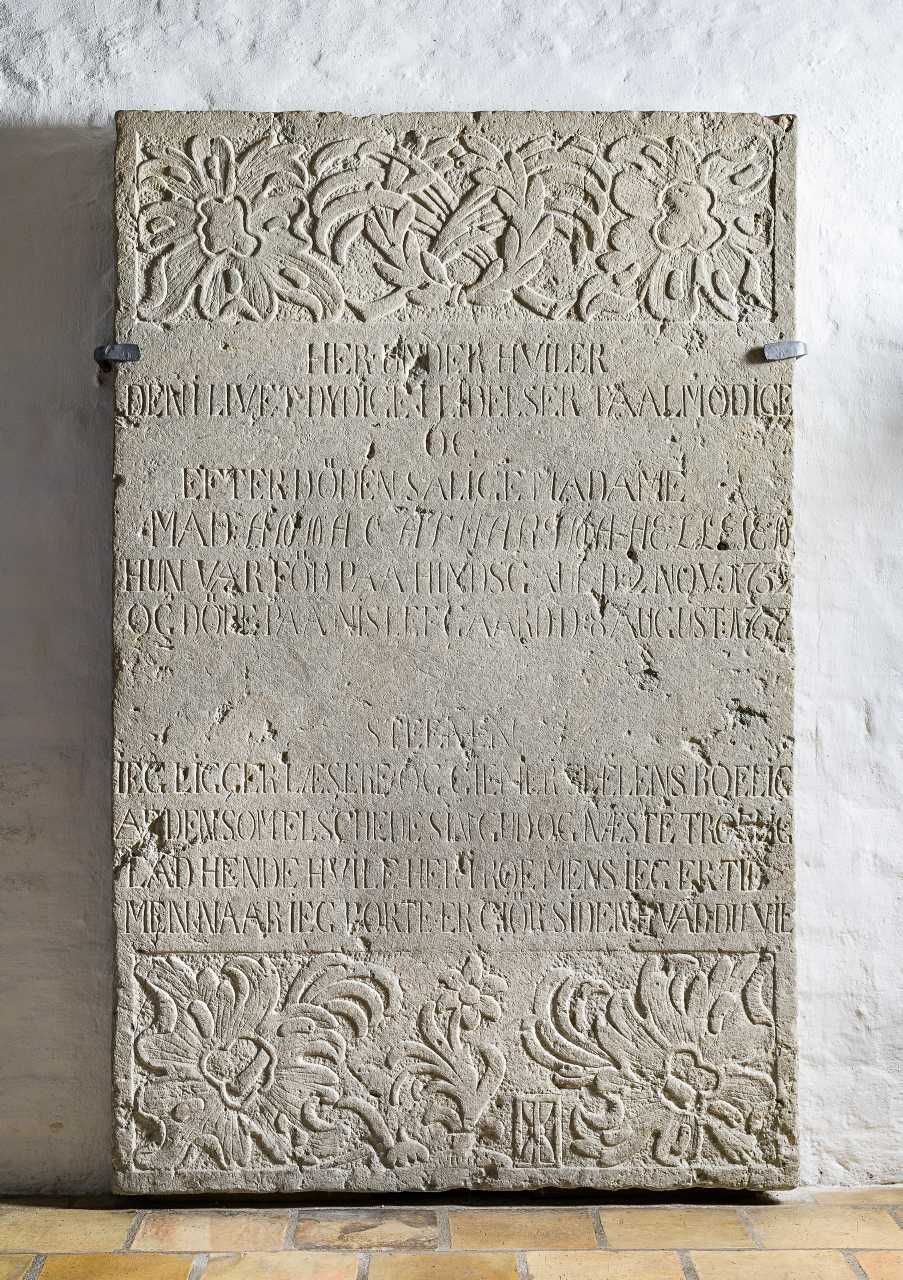 HER UNDER HVILER
DEN I LIVET DYDIGE I LIDELSER TAALMÖDIGE
OG
EFTER DÖDEN SALIGE MADAME
MAD: ANNA CATHARINA HELLESEN
HUN VAR FÖD PAA HINDSGAUL D: 2 NOV: 173
OG DÖDE PAA NISLEFGAARD D: 8 AUGUST: 1767
STEEN
IEG LIGGER LÆSERE OG GIEMER HELENS BOELIG
AF DEN SOM ELSCHEDE SIN GUD OG NÆSTE TROELIG
LAD HENDE HVILE HER I ROE MENS IEG ER TID
MEN NAAR IEG BORTE ER GIÖR SIDEN HVAD DU VIL